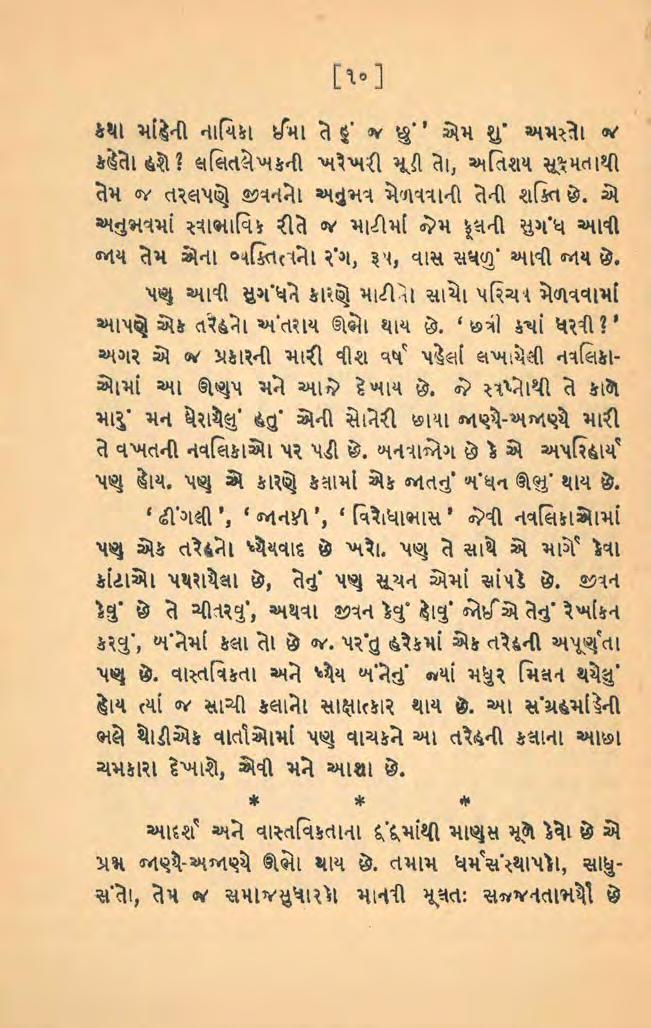 [૧૦]
કથા માંહેની નાયિકા ઈમા તે હું જ છું' એમ શું અમસ્તો જ
કહેતો હશે? લલિતલેખકની ખરેખરી મૂડી તો, અતિશય સૂક્ષ્મતાથી
તેમ જ તરલપણે જીવનનો અનુભવ મેળવવાની તેની શક્તિ છે. એ
અનુભવમાં સ્વાભાવિક રીતે જ માટીમાં જેમ ફૂલની સુગંધ આવી
જાય તેમ એના વ્યક્તિત્વનો રંગ, રૂપ, વાસ સઘળું આવી જાય છે.
પણ આવી સુગંધને કારણે માટીનો સાચો પરિચય મેળવવામાં
આપણે એક તરેહનો અંતરાય ઊભો થાય છે. ‘છત્રી કયાં ધરવી?’
અગર એ જ પ્રકારની મારી વીશ વર્ષ પહેલાં લખાયેલી નવલિકા-
ઓમાં આ ઊણપ મને આજે દેખાય છે. જે સ્વપ્નોથી તે કાળે
મારું મન ઘેરાયેલું હતું એની સોનેરી છાયા જાણ્યે-અજાણ્યે મારી
તે વખતની નવલિકાઓ પર પડી છે. બનવાજોગ છે કે એ અપરિહાર્ય
પણ હોય. પણ એ કારણે કલામાં એક જાતનું બંધન ઊભું થાય છે.
‘ઢીંગલી’, ‘જાનકી’, ‘વિરોધાભાસ’ જેવી નવલિકાઓમાં
પણ એક તરેહનો ધ્યેયવાદ છે ખરો. પણ તે સાથે એ માર્ગે કેવા
કાંટાઓ પથરાયેલા છે, તેનું પણ સૂચન એમાં સાંપડે છે. જીવન
કેવું છે તે ચીતરવું, અથવા જીવન કેવું હોવું જોઈએ તેનું રેખાંકન
કરવું, બંનેમાં કલા તો છે જ. પરંતુ હરેકમાં એક તરેહની અપૂર્ણતા
પણ છે. વાસ્તવિકતા અને ધ્યેય બંનેનું જ્યાં મધુર મિલન થયેલું
હોય ત્યાં જ સાચી કલાનો સાક્ષાત્કાર થાય છે. આ સંગ્રહમાંહેની
ભલે થોડીએક વાર્તાઓમાં પણ વાચકને આ તરેહની કલાના આછા
ચમકારા દેખાશે, એવી મને આશા છે.
* * *
આદર્શ અને વાસ્તવિકતાના દ્વંદ્વમાંથી માણસ મૂળે કેવો છે એ
પ્રશ્ન જાણ્યે-અજાણ્યે ઊભો થાય છે. તમામ ધર્મસંસ્થાપકો, સાધુ-
સંતો, તેમ જ સમાજસુધારકો માનવી મૂલતઃ સજ્જનતાભર્યો છે